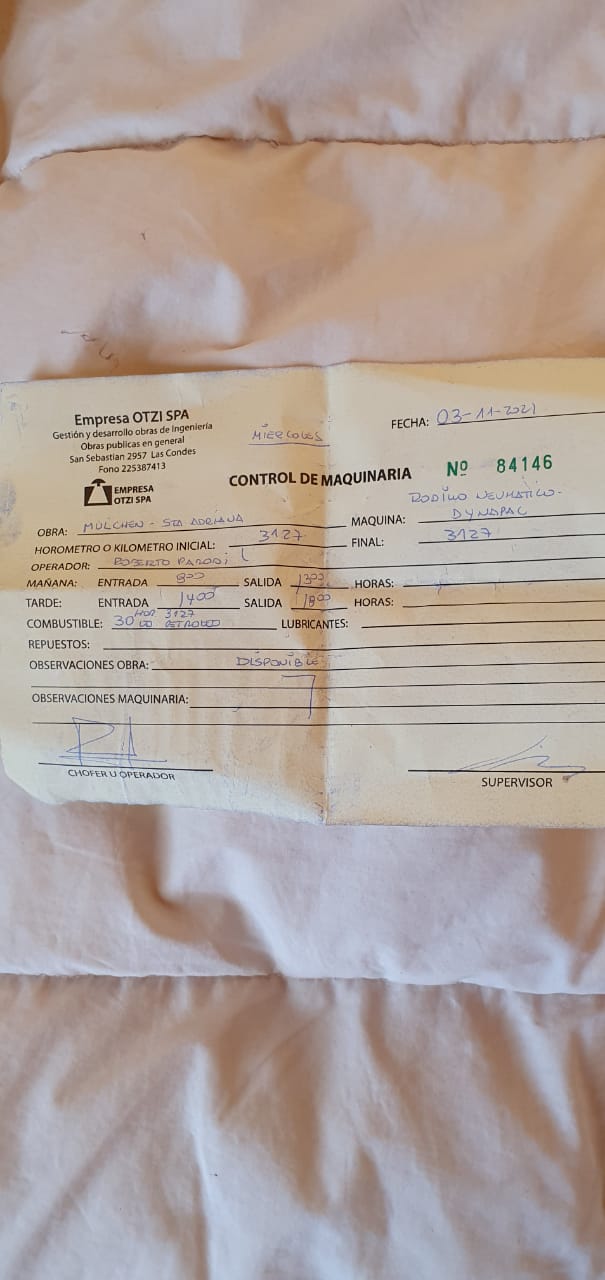 Empresa OTZI SPA
Gestión y desarrollo obras de Ingeniería
Obras publicas en general
San Sebastian 2957 Las Condes
Fono 225387413
EMPRESA
OTZI SPA
MIERCOLES
FECHA: 03-11-2021
CONTROL DE MAQUINARIA
Nº 84146
OBRA: MULCHEN - STA ADRIANA
MAQUINA: RODILLO NEUMATICO - DYNAPAC
HOROMETRO O KILOMETRO INICIAL: 3127
FINAL: 3127
OPERADOR: ROBERTO PARODI
MAÑANA: ENTRADA 800 SALIDA 1300 HORAS:
TARDE: ENTRADA 1400 SALIDA 1800 HORAS:
HOR 3127
COMBUSTIBLE: 30 PETROLEO LUBRICANTES:
REPUESTOS:
OBSERVACIONES OBRA: DISPONIBLE
OBSERVACIONES MAQUINARIA:
CHOFER U OPERADOR
SUPERVISOR